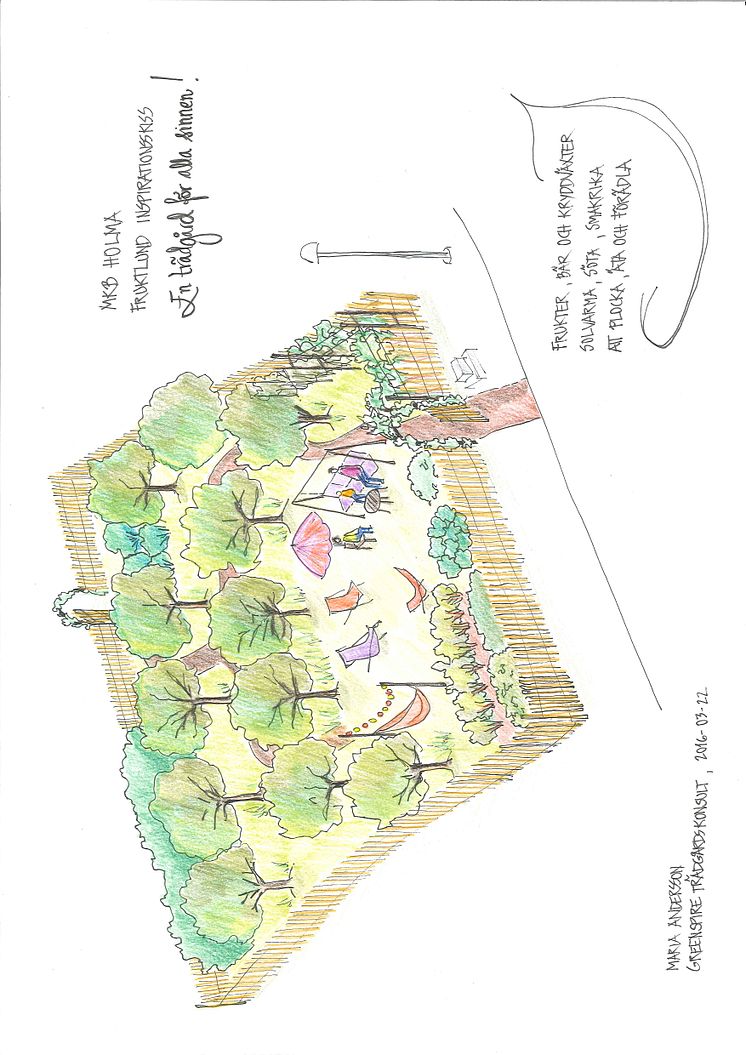 MKB HOLMA
FRUKTLUND INSPIRATIONSSKISS
En trädgård för alla sinnen!
FRUKTER, BÄR OCH KRYDDVÄXTER
SOLVARMA, SÖTA, SMAKRIKA
ATT PLOCKA, ÄTA OCH FÖRÄDLA
MARIA ANDERSSON
GREENSPIRE TRÄDGÅRDSKONSULT, 2016-03-22